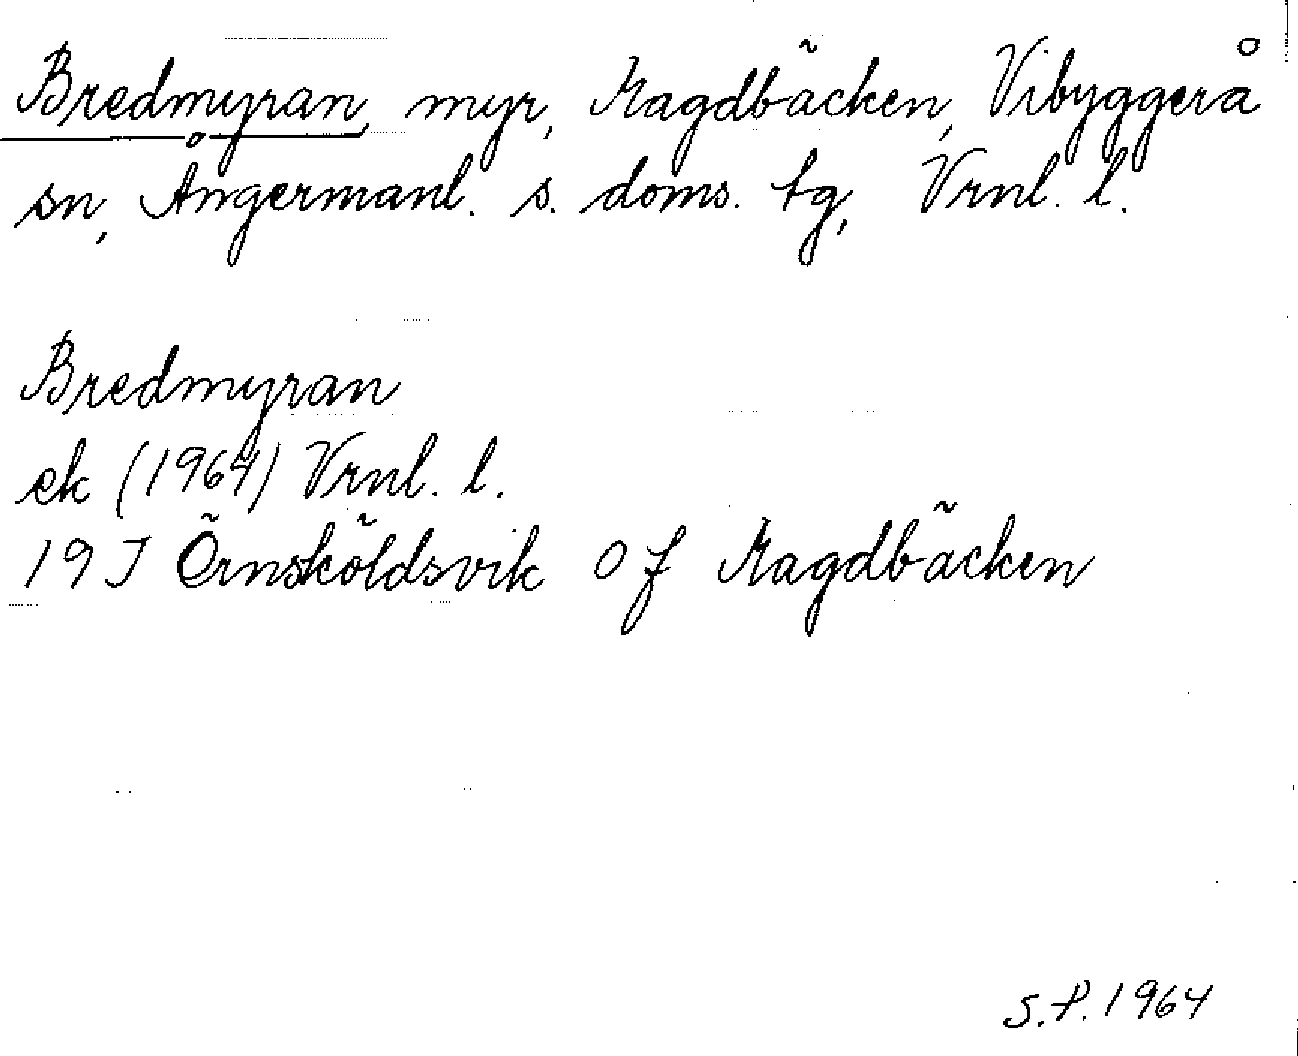 Bredmyran, myr, Kagdbäcken, Vibyggerå
sn, Ångermanl. s. doms. tg, Vrnl. l.
Bredmyran
ek (1964) Vrnl. l.
19 J Örnsköldsvik 0 f Kagdbäcken
S.P. 1964